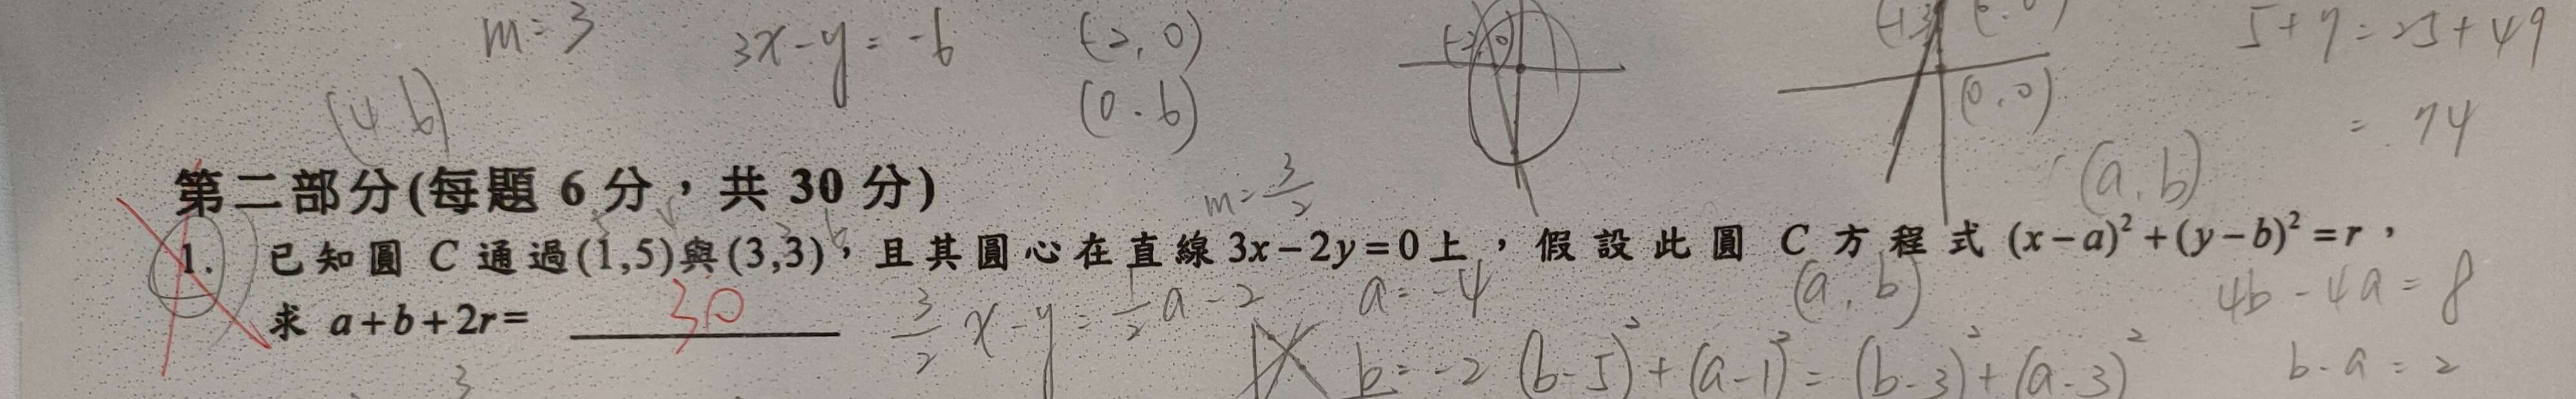 m=3 3x-y=-6 (-2,0) (-2,0) 5+9=25+49
(4 6) (0.6) (0.0) =74
第二部分(每題 6 分，共 30 分) m=3/2 (a.b)
1. 已知圓 C 通過(1,5)與(3,3)，且其圓心在直線 3x-2y=0 上，假設此圓 C 方程式 (x-a)²+(y-b)²=r，
求 a+b+2r= 30 3/2 x-y=1/2 a-2 a=-4 (a.b) 4b-4a=8
3 b=-2 (b-5)²+(a-1)²=(b-3)²+(a-3)² b-a=2